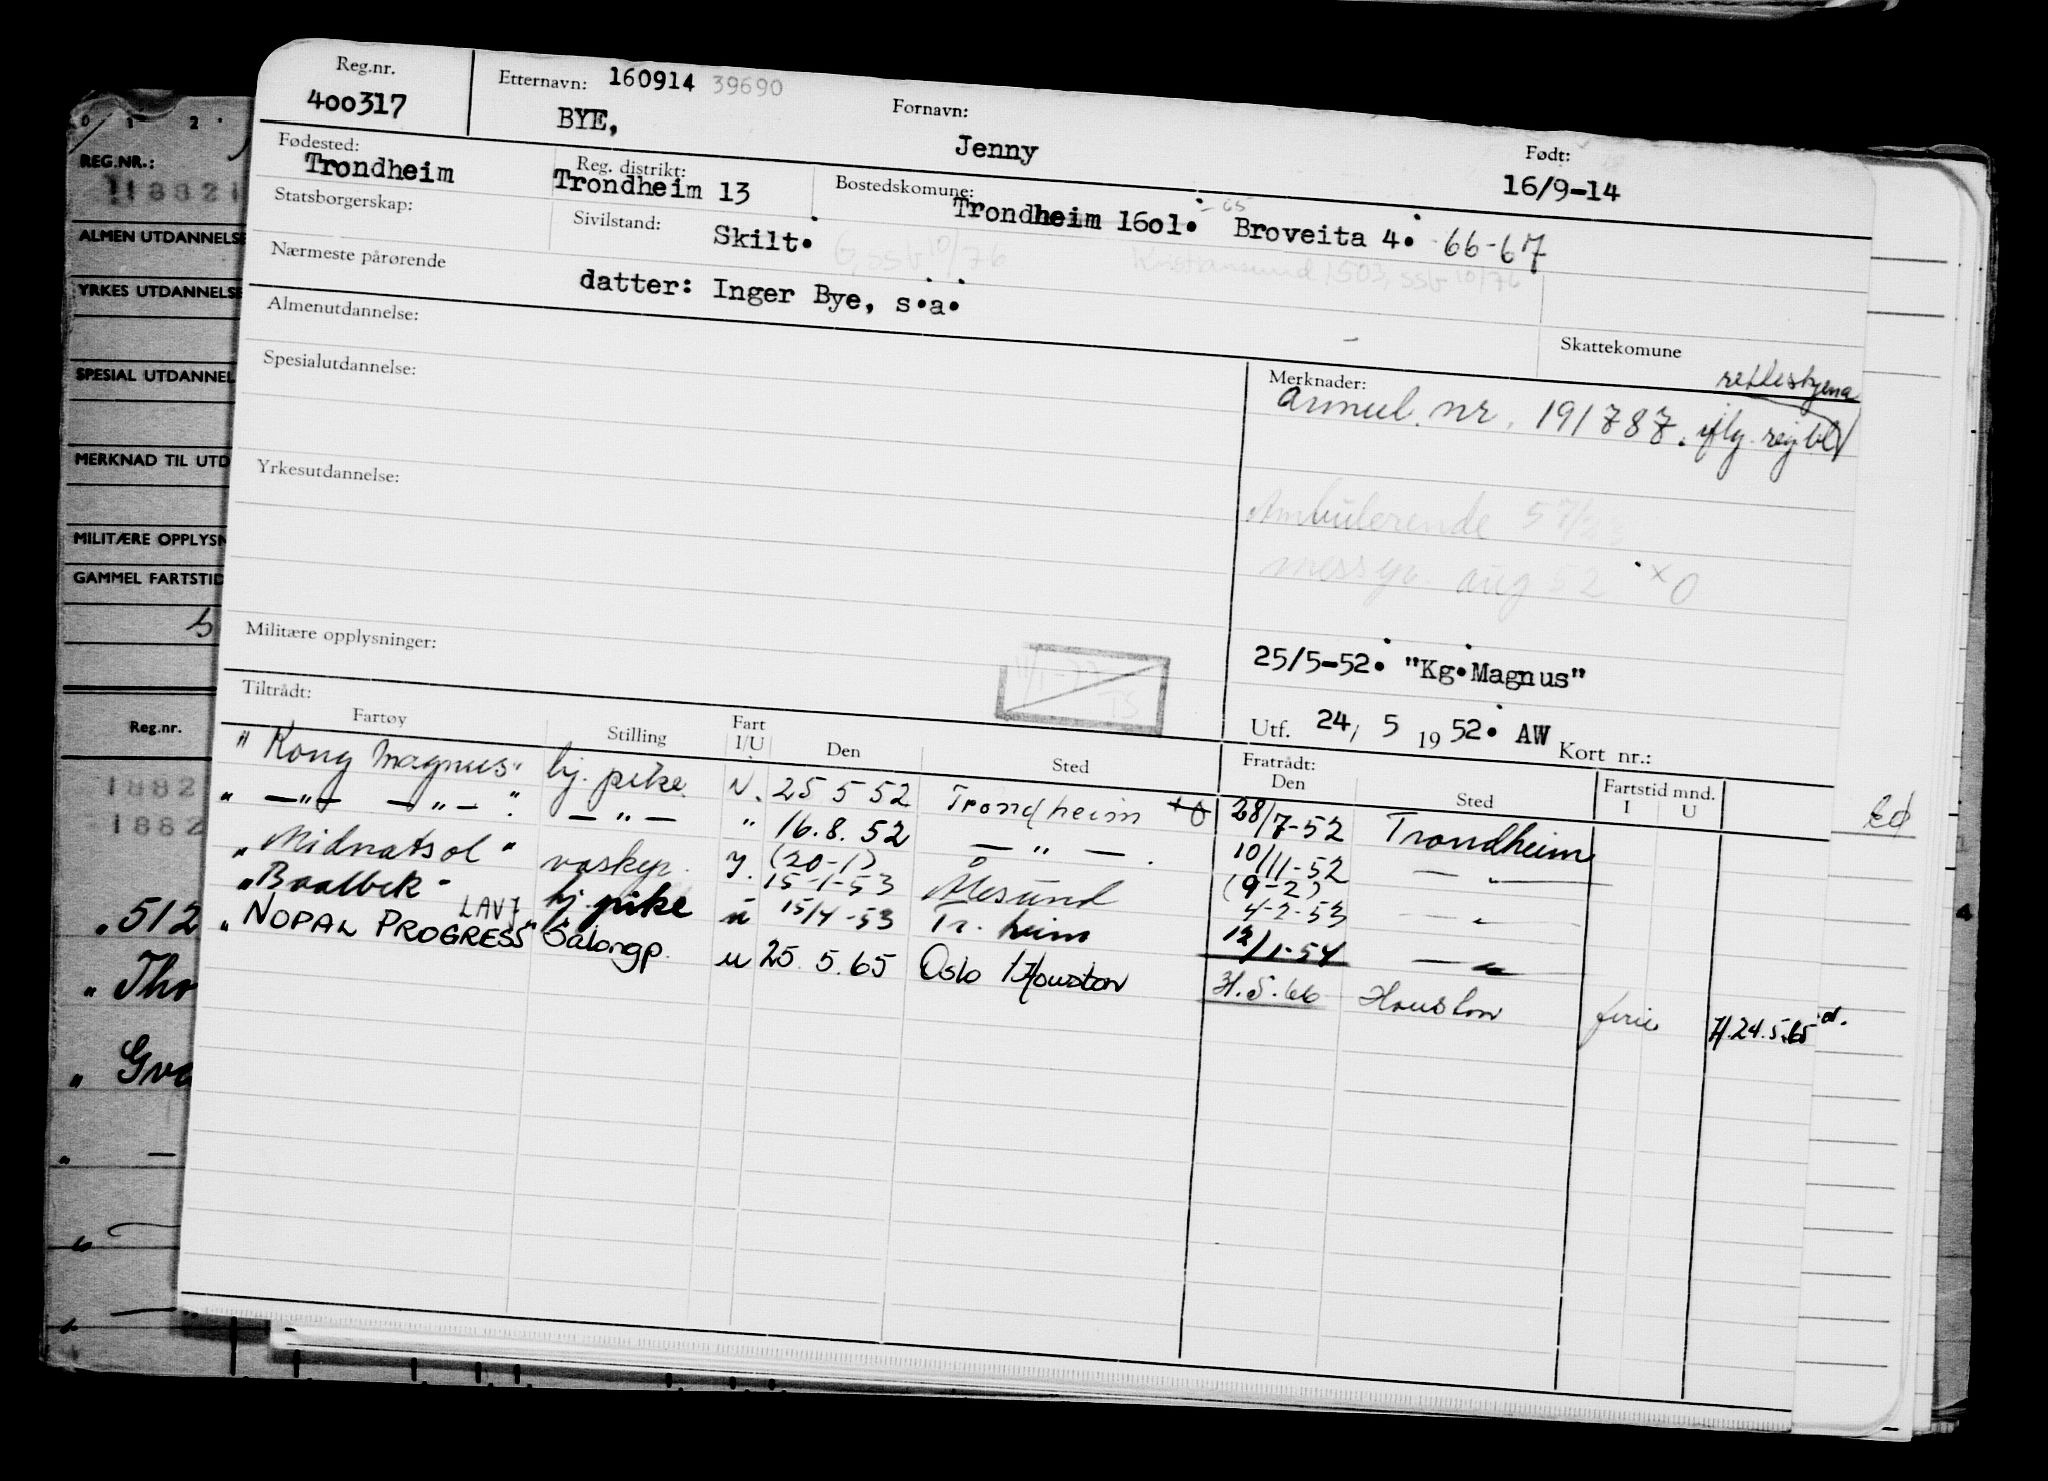 Reg.nr.
400317
Etternavn: 160914 39690
BYE,
Fornavn:
Jenny
Født:
16/9-14
Fødested:
Trondheim
Reg. distrikt:
Trondheim 13
Bostedskomune:
Trondheim 1601. Broveita 4. 66-67
- 65
Statsborgerskap:
Sivilstand:
Skilt.
G, SSB 10/76
Kristiansund 1503, SSB 10/76
Nærmeste pårørende
datter: Inger Bye, s.a.
Almenutdannelse:
Skattekomune
Spesialutdannelse:
Merknader:
annul. nr. 191787. iflg. reg.bl
Yrkesutdannelse:
Ambulerende 5
messp. aug 52 x O
Militære opplysninger:
25/5-52. "Kg.Magnus"
Utf. 24, 5 1952. AW Kort nr.:
Tiltrådt:
Fratrådt:
Fartøy Stilling Fart I/U Den Sted Den Sted Fartstid mnd. I U
"Kong Magnus" bj. pike N. 25 5 52 Trondheim +O 28/7-52 Trondheim
" — " — — " — " — " — " 16.8. 52 — " — . 10/11-52 — " —
"Midnatsol" vaskep. (20-1) 15-1-53 Ålesund (9-2) 4-2-53 — "
"Baalbek" bj. pike u 15/4-53 Tr. heim 12/1-54 — "
LAVJ
"NOPAL PROGRESS" Salongp. u 25. 5. 65 Oslo / Houston 31.5.66 Houston ferie H.24.5.65
REG.NR.:
0 1 2
118821
ALMEN UTDANNELSE
YRKES UTDANNELSE
SPESIAL UTDANNEL
MERKNAD TIL UTD
MILITÆRE OPPLYSN
GAMMEL FARTSTID
Reg.nr.
1882
1882
" 512
" Tho